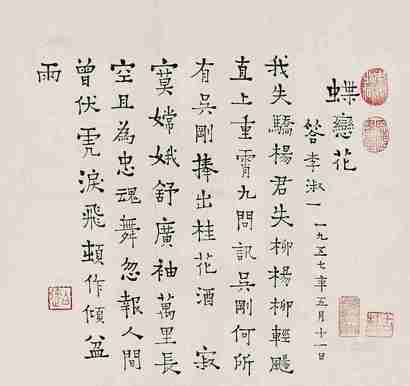 蝶戀花
答李淑一 一九五七年五月十一日
我失驕楊君失柳楊柳輕颺
直上重霄九問訊吳剛何所
有吳剛捧出桂花酒 寂
寞嫦娥舒廣袖萬里長
空且為忠魂舞忽報人間
曾伏虎淚飛頓作傾盆
雨